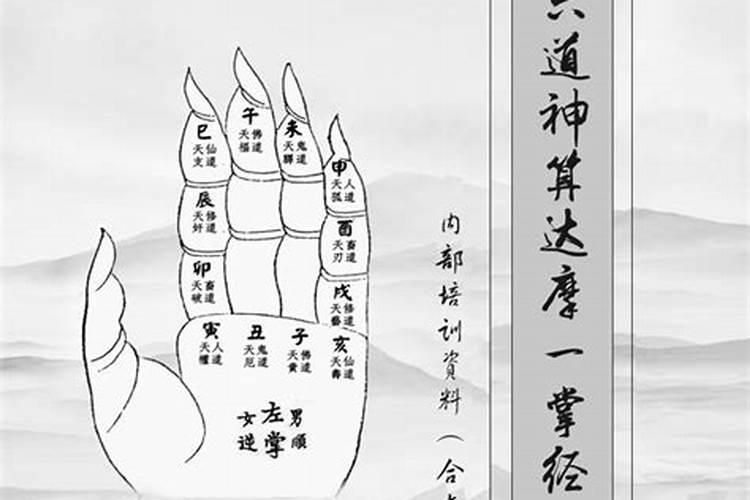 六道神算达摩一掌经
内部培训資料（合
巳
天支 仙道
午
天福 佛道
未
天驛 鬼道
申
天孤 人道
辰
天奸 修道
酉
天刃 畜道
卯
天破 畜道
戌
天藝 修道
寅
天權 人道
丑
天厄 鬼道
子
天貴 佛道
亥
天壽 仙道
男順
左掌
女逆